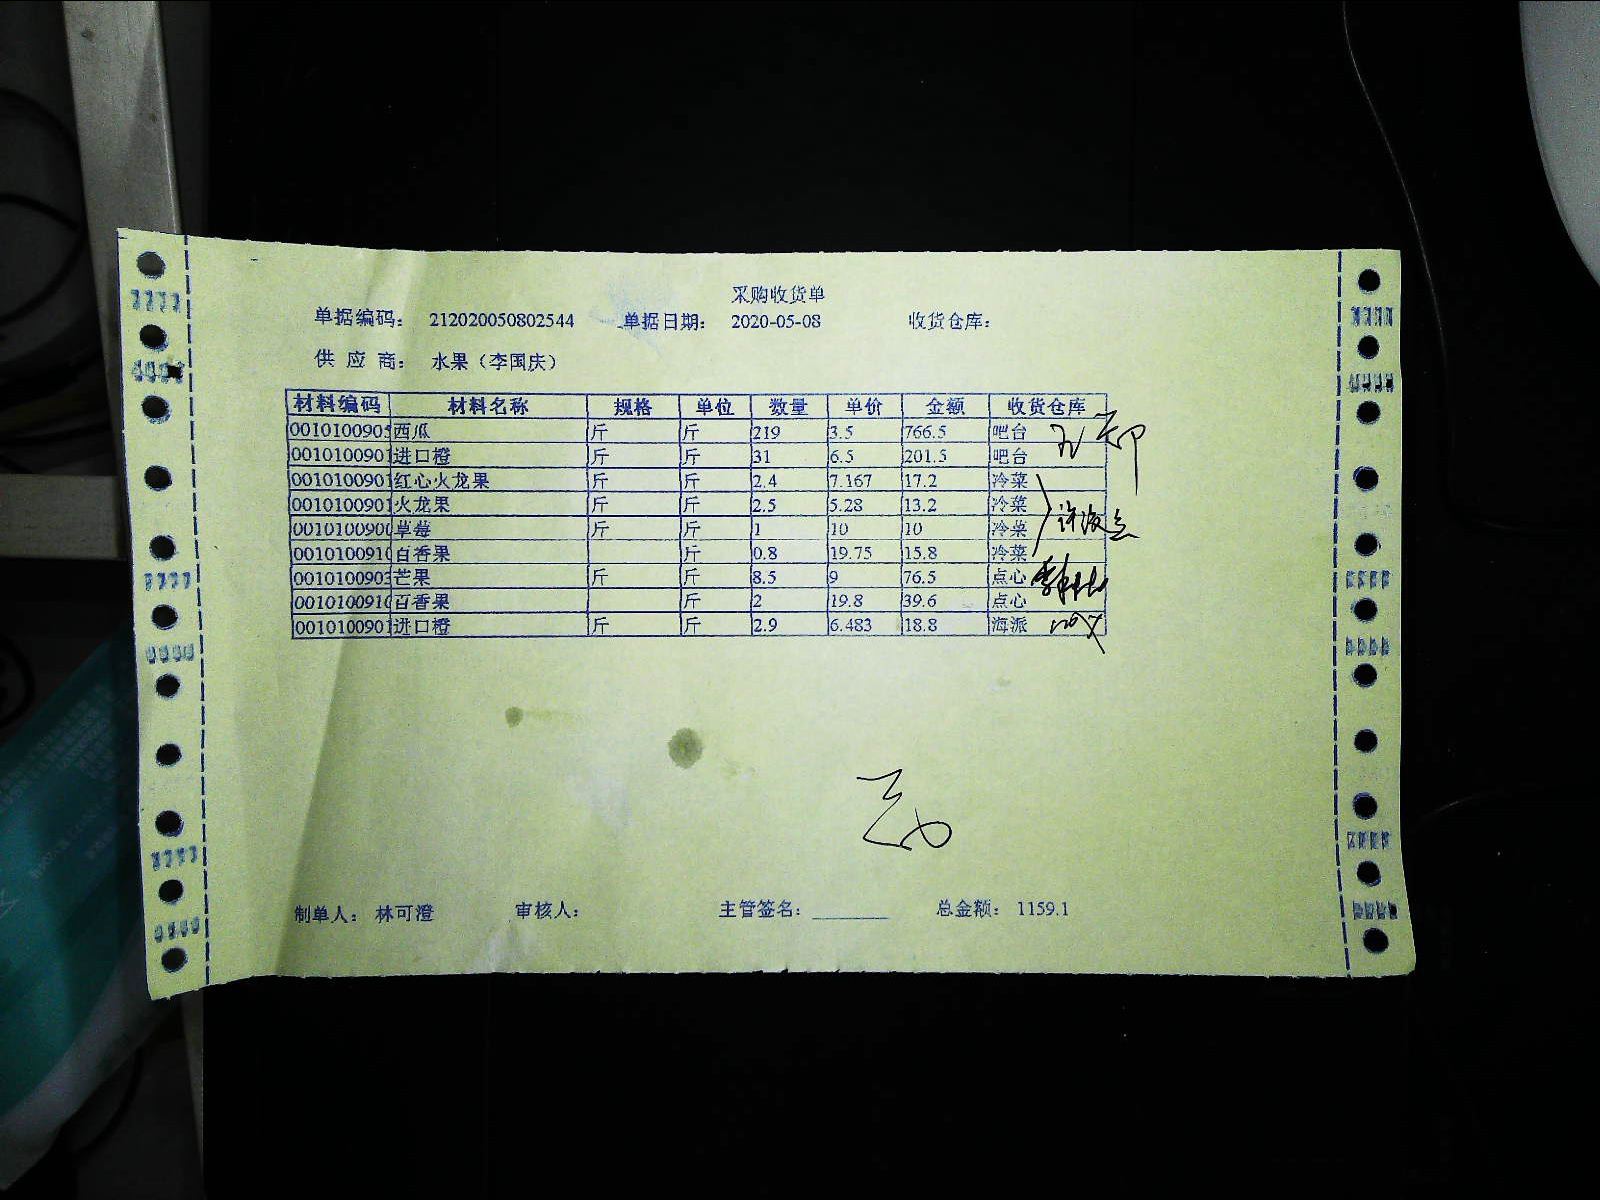 采购收货单
单据编码： 212020050802544 单据日期： 2020-05-08 收货仓库：
供 应 商： 水果（李国庆）
材料编码 材料名称 规格 单位 数量 单价 金额 收货仓库
0010100905 西瓜 斤 斤 219 3.5 766.5 吧台
0010100901 进口橙 斤 斤 31 6.5 201.5 吧台
0010100901 红心火龙果 斤 斤 2.4 7.167 17.2 冷菜
0010100901 火龙果 斤 斤 2.5 5.28 13.2 冷菜
0010100900 草莓 斤 斤 1 10 10 冷菜
0010100910 百香果 斤 0.8 19.75 15.8 冷菜
0010100903 芒果 斤 斤 8.5 9 76.5 点心
0010100910 百香果 斤 2 19.8 39.6 点心
0010100901 进口橙 斤 斤 2.9 6.483 18.8 海派
制单人： 林可澄 审核人： 主管签名： 总金额： 1159.1